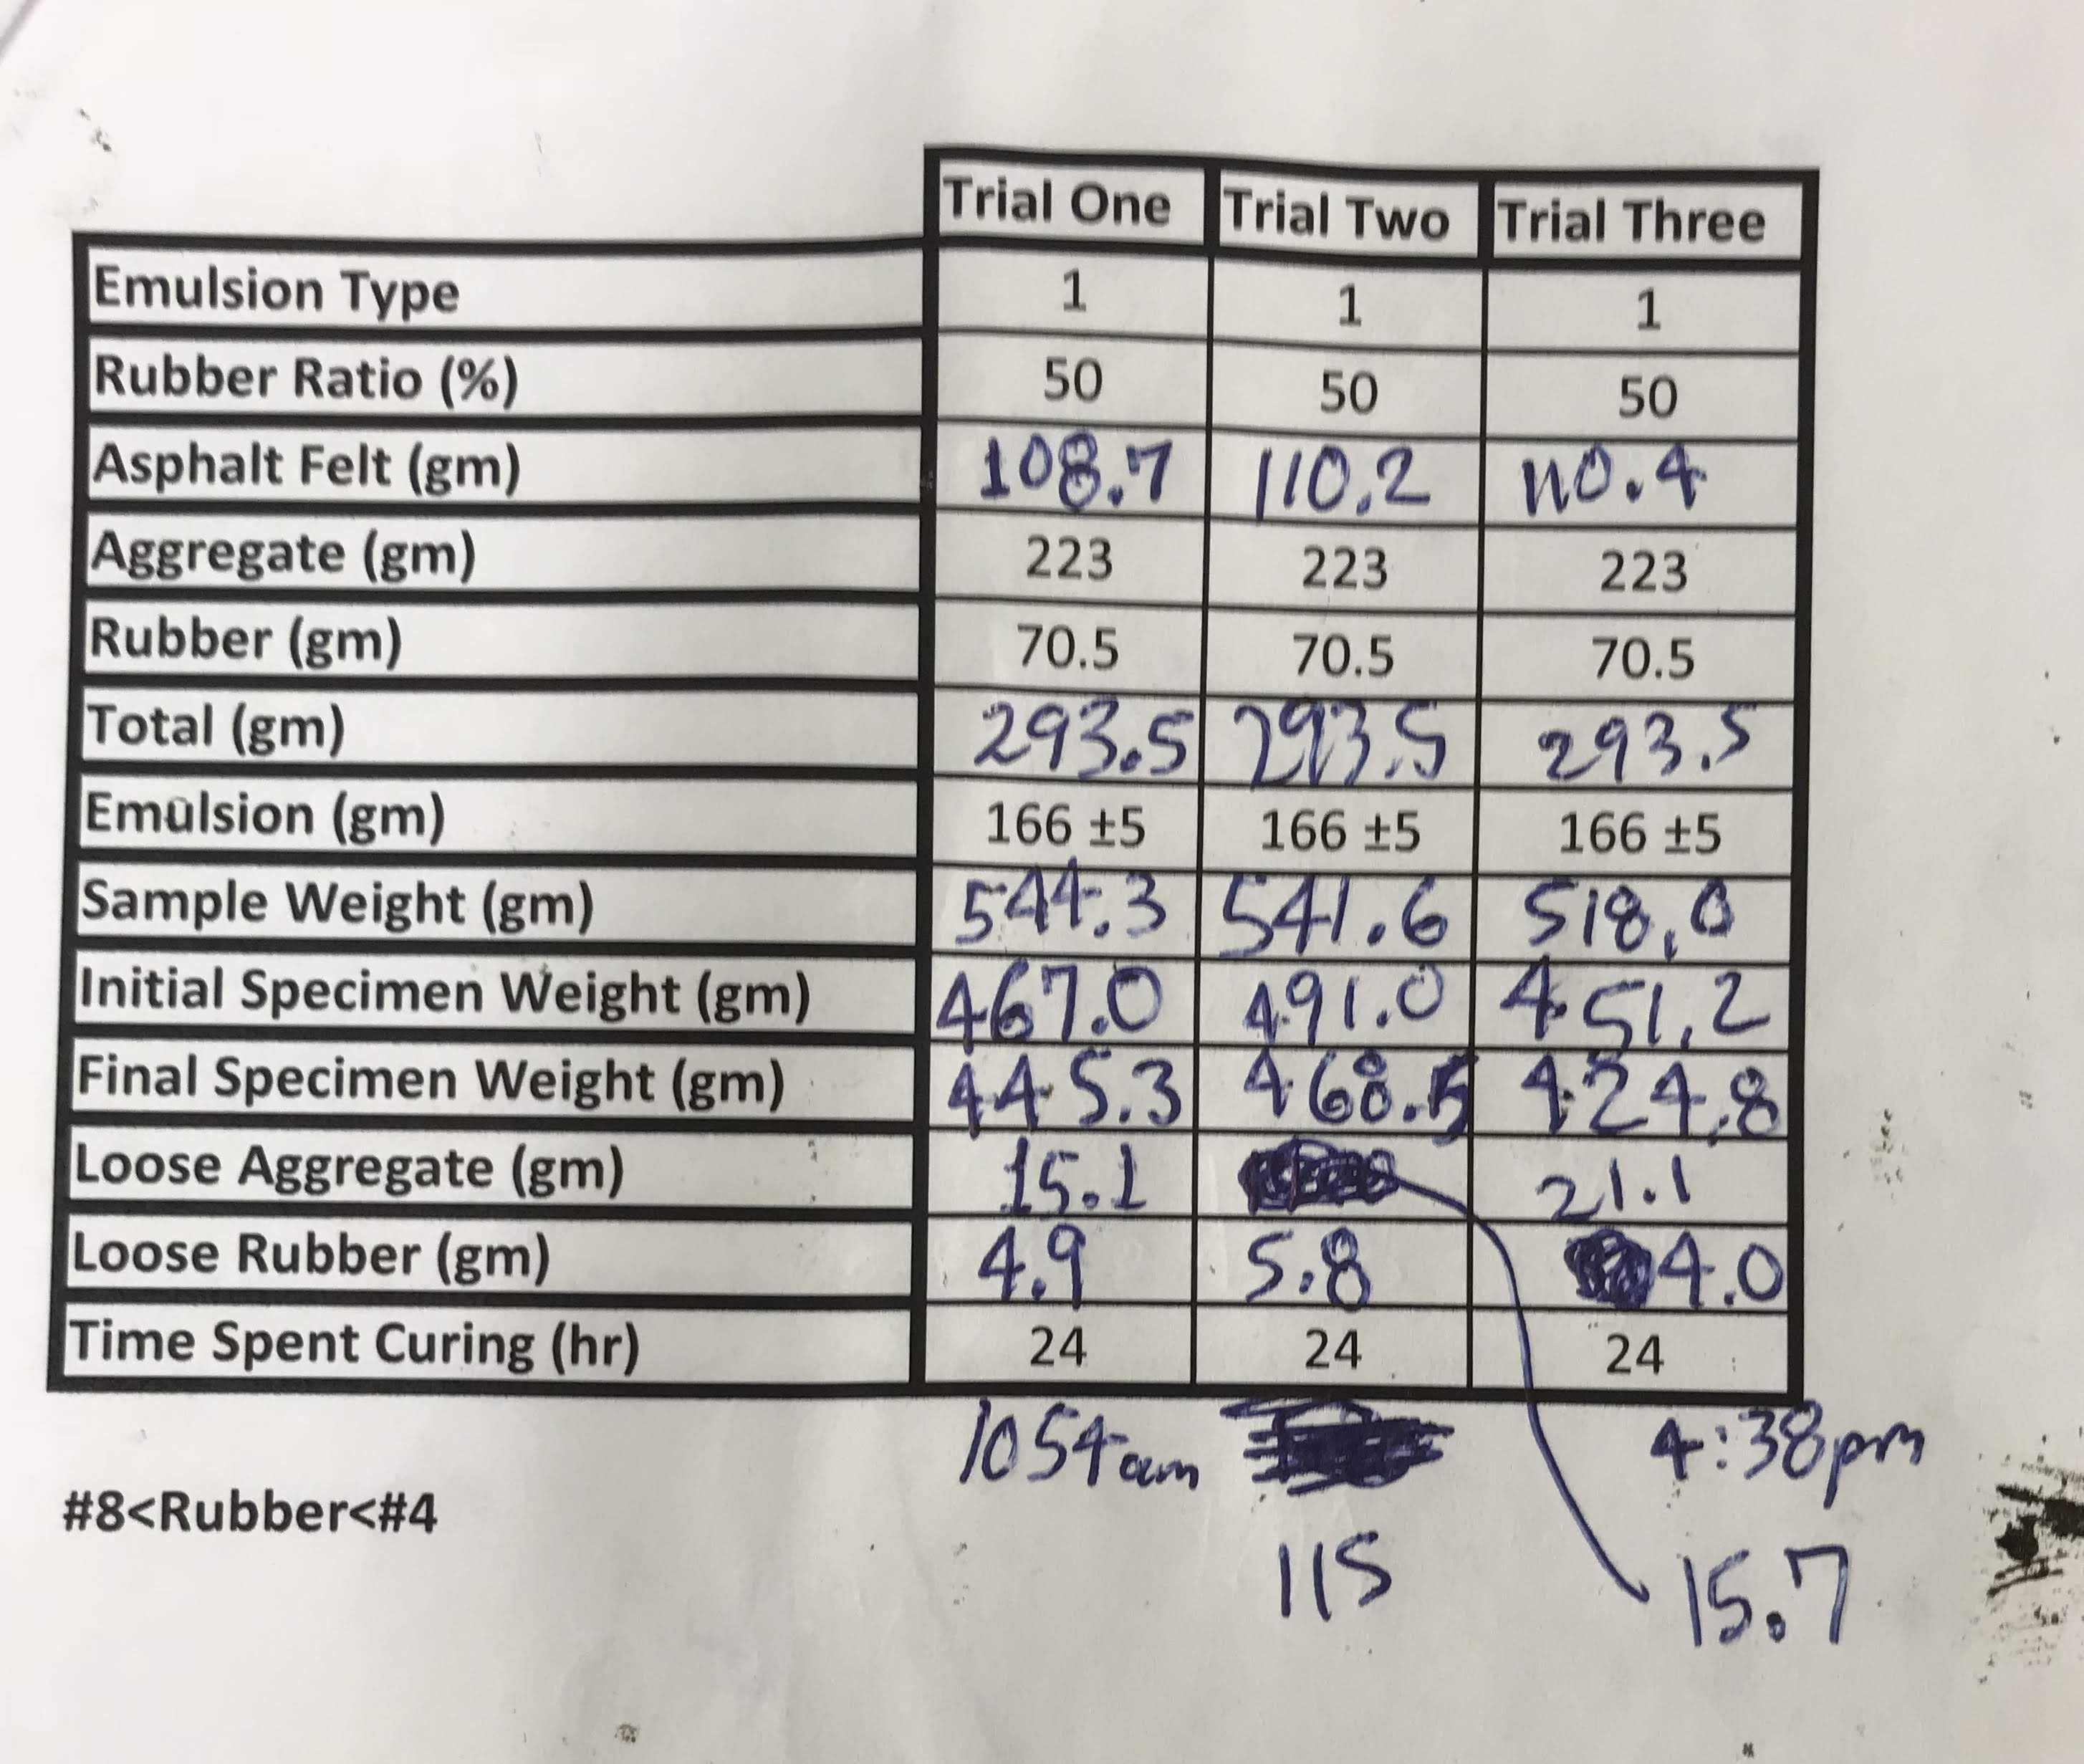 Trial One Trial Two Trial Three
Emulsion Type 1 1 1
Rubber Ratio (%) 50 50 50
Asphalt Felt (gm) 108.7 110.2 110.4
Aggregate (gm) 223 223 223
Rubber (gm) 70.5 70.5 70.5
Total (gm) 293.5 293.5 293.5
Emulsion (gm) 166 ±5 166 ±5 166 ±5
Sample Weight (gm) 544.3 541.6 518.0
Initial Specimen Weight (gm) 467.0 491.0 451.2
Final Specimen Weight (gm) 445.3 468.5 424.8
Loose Aggregate (gm) 15.1 21.1
Loose Rubber (gm) 4.9 5.8 4.0
Time Spent Curing (hr) 24 24 24
1054am 4:38pm
#8<Rubber<#4
115 15.7